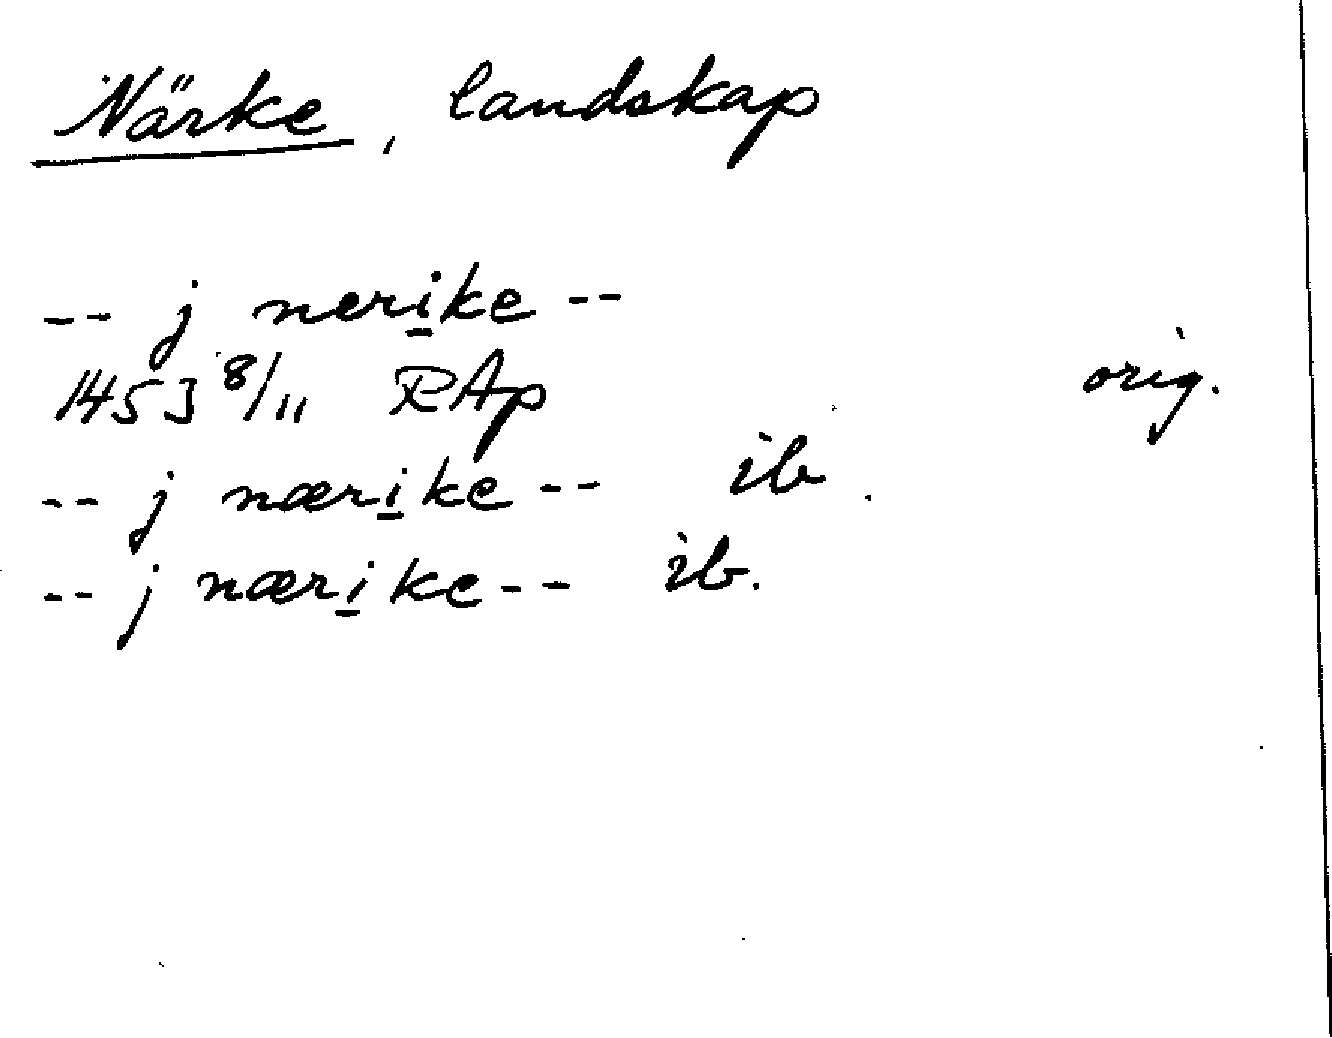 Närke, landskap
-- j nerike --
1453 8/11 RAp orig.
-- j nærike -- ib.
-- j nærike -- ib.